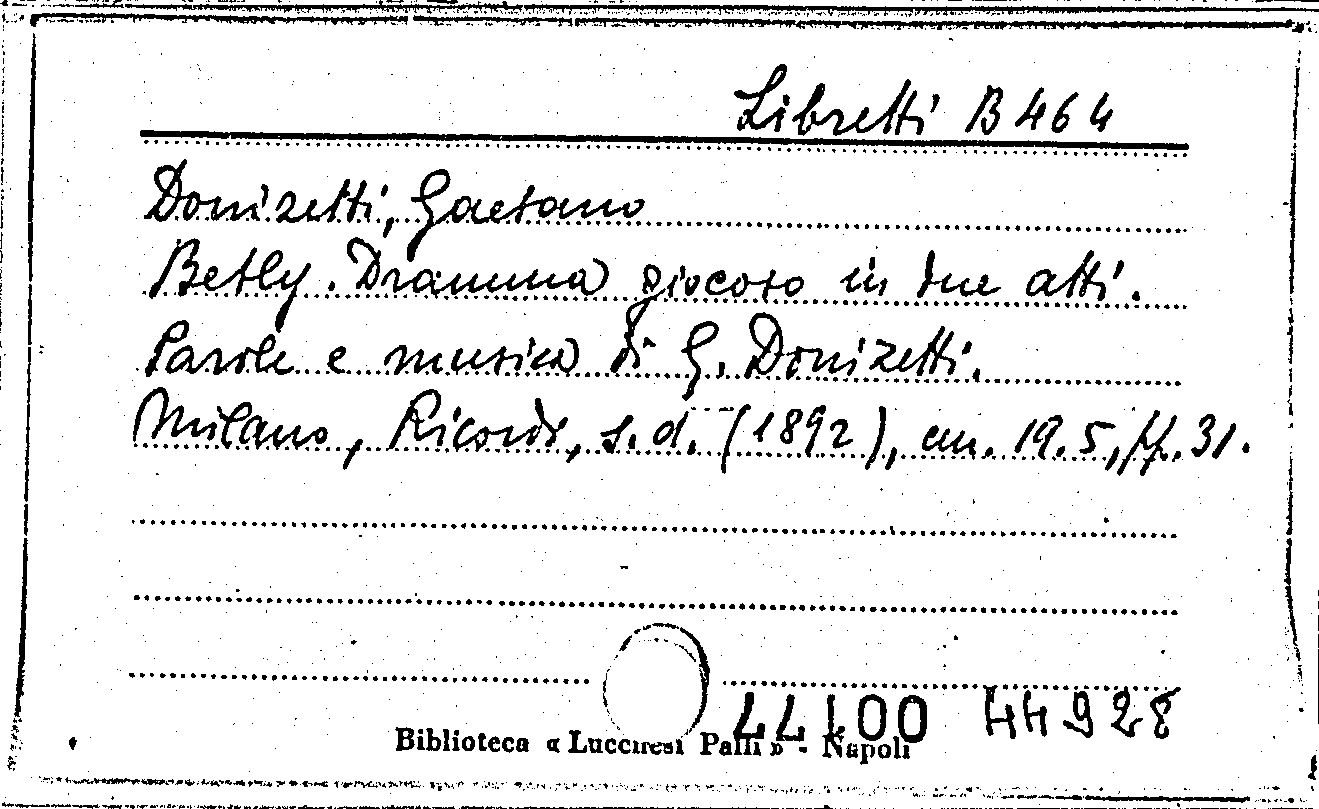 Libretti B 464
Donizetti, Gaetano
Betly. Dramma giocoso in due atti.
Parole e musica di G. Donizetti.
Milano, Ricordi, s.d. (1892), cm. 19.5, pp. 31.
44100 44928
Biblioteca « Lucchesi Palli » - Napoli